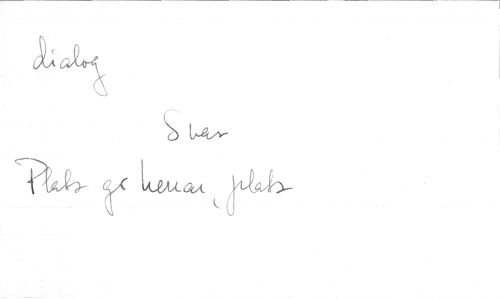 dialog
Svar
Plats go herrar, plats